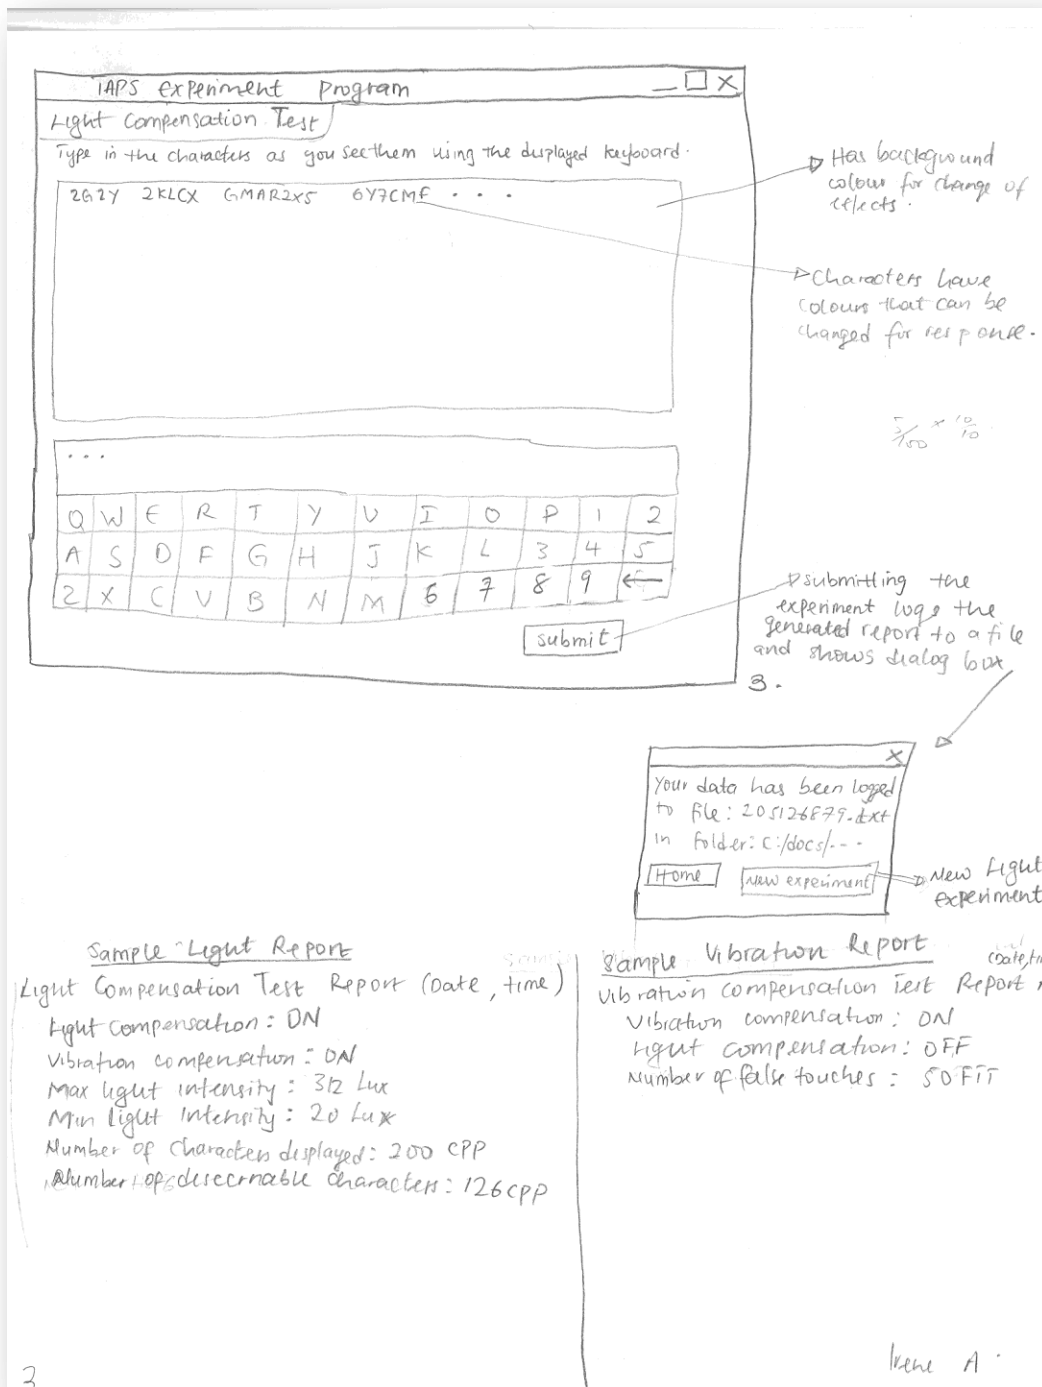 IAPS Experiment Program
Light Compensation Test
Type in the characters as you see them using the displayed keyboard.
2G2Y 2KLCX GMAR2X5 6Y7CMF . . .
Has background
colour for change of
effects.
Characters have
colours that can be
changed for response.
. . .
Q W E R T Y U I O P 1 2
A S D F G H J K L 3 4 5
Z X C V B N M 6 7 8 9 ←
submit
submitting the
experiment logs the
generated report to a file
and shows dialog box
3.
X
Your data has been logged
to file: 205126879.txt
in folder: C:/docs/---
Home New experiment
New Light
experiment
Sample Light Report
Light Compensation Test Report (Date, time)
Light compensation: ON
Vibration compensation: ON
Max light intensity: 312 Lux
Min Light Intensity: 20 Lux
Number of characters displayed: 200 CPP
Number of descernable characters: 126 CPP
Sample Vibration Report
(Date, ti
Vibration compensation Test Report
Vibration compensation: ON
Light compensation: OFF
Number of false touches: 50 FIT
Irene A.
3